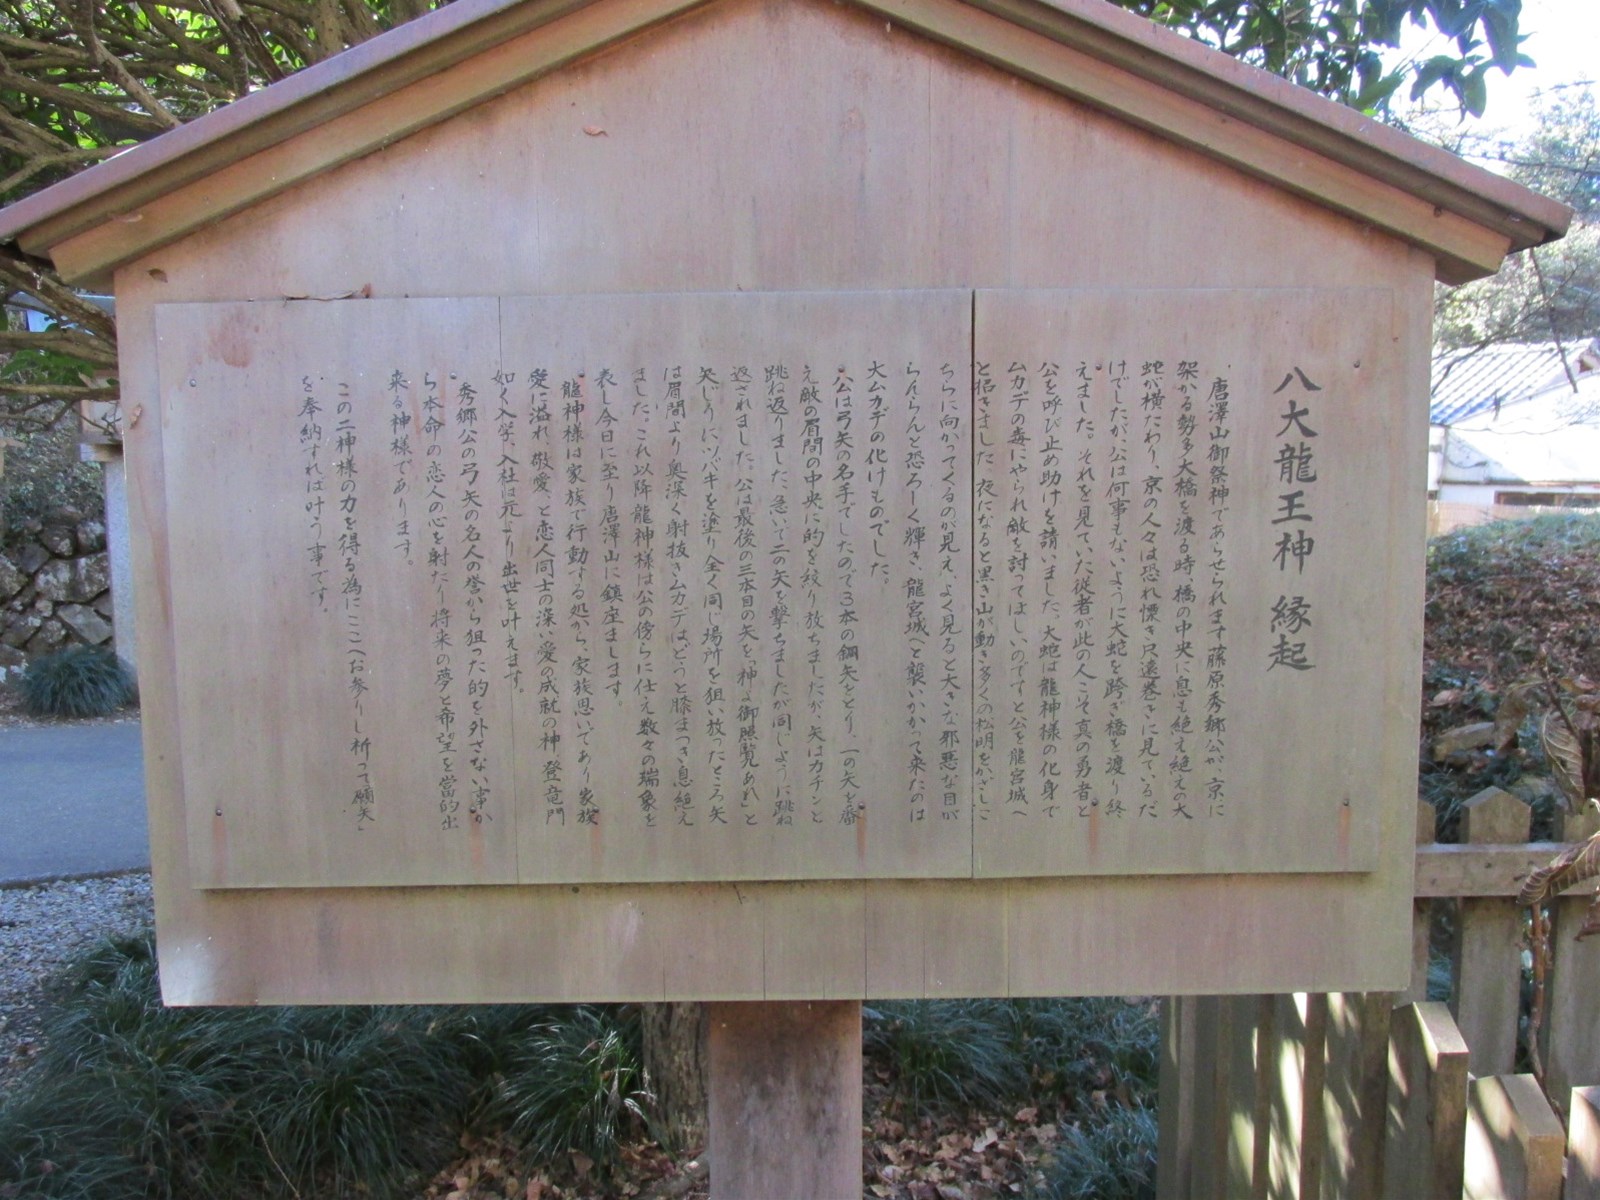 八大龍王神 縁起
唐澤山御祭神であらせられます藤原秀郷公が、京に
架かる勢多大橋を渡る時、橋の中央に息も絶え絶えの大
蛇が横たわり、京の人々は恐れ慄き只遠巻きに見ているだ
けでしたが、公は何事もないように大蛇を跨ぎ橋を渡り終
えました。それを見ていた従者が此の人こそ真の勇者と
公を呼び止め助けを請いました。大蛇は龍神様の化身で
ムカデの毒にやられ敵を討ってほしいのですと公を龍宮城へ
と招きました、夜になると黒き山が動き多くの松明をかざしこ
ちらに向かってくるのが見え、よく見ると大きな邪悪な目が
らんらんと恐ろしく輝き、龍宮城へと襲いかかって来たのは
大ムカデの化けものでした。
公は弓矢の名手でしたので3本の鋼矢をとり、一の矢を番
え敵の眉間の中央に的を絞り放ちましたが、矢はカチンと
跳ね返りました、急いで二の矢を撃ちましたが同じように跳ね
返されました。公は最後の三本目の矢を「神よ御照覧あれ」と
矢じりにツバキを塗り全く同じ場所を狙い放ったところ矢
は眉間より奥深く射抜きムカデはどうと膝まづき息絶え
ました。これ以降龍神様は公の傍らに仕え数々の瑞象を
表し今日に至り唐澤山に鎮座まします。
龍神様は家族で行動する処から、家族思いであり家族
愛に溢れ、敬愛、と恋人同士の深い愛の成就の神、登竜門
如く入学、入社は元より出世を叶えます。
秀郷公の弓矢の名人の誉から狙った的を外さない事か
ら本命の恋人の心を射たり将来の夢と希望を當的出
来る神様であります。
この二神様の力を得る為にここへお参りし祈って「願矢」
を奉納すれば叶う事です。